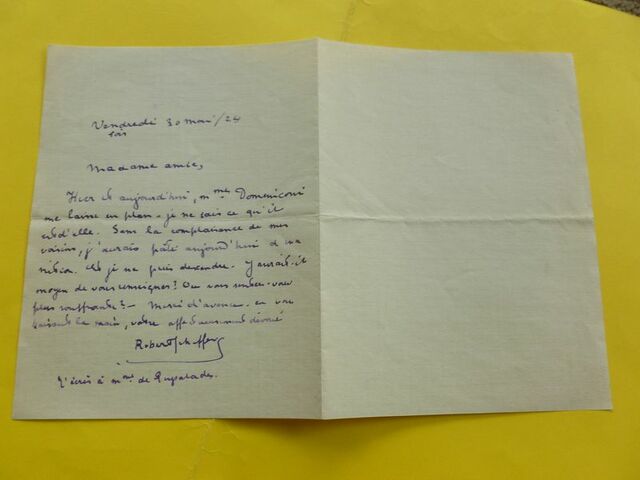 Vendredi 30 mai/24
soir
Madame amie,
Hier et aujourd'hui, Mme Domeniconi
me laisse en plan - je ne sais ce qu'il
est d'elle. Sans la complaisance de mes
voisins, j'aurais pâti aujourd'hui d'
et je ne puis descendre. Y aurait-il
moyen de vous renseigner? Ou vous
plus souffrante? - Merci d'avance en vous
baisant la main, votre affectueusement dévoué
Robert Scheffer
J'écris à Mme de